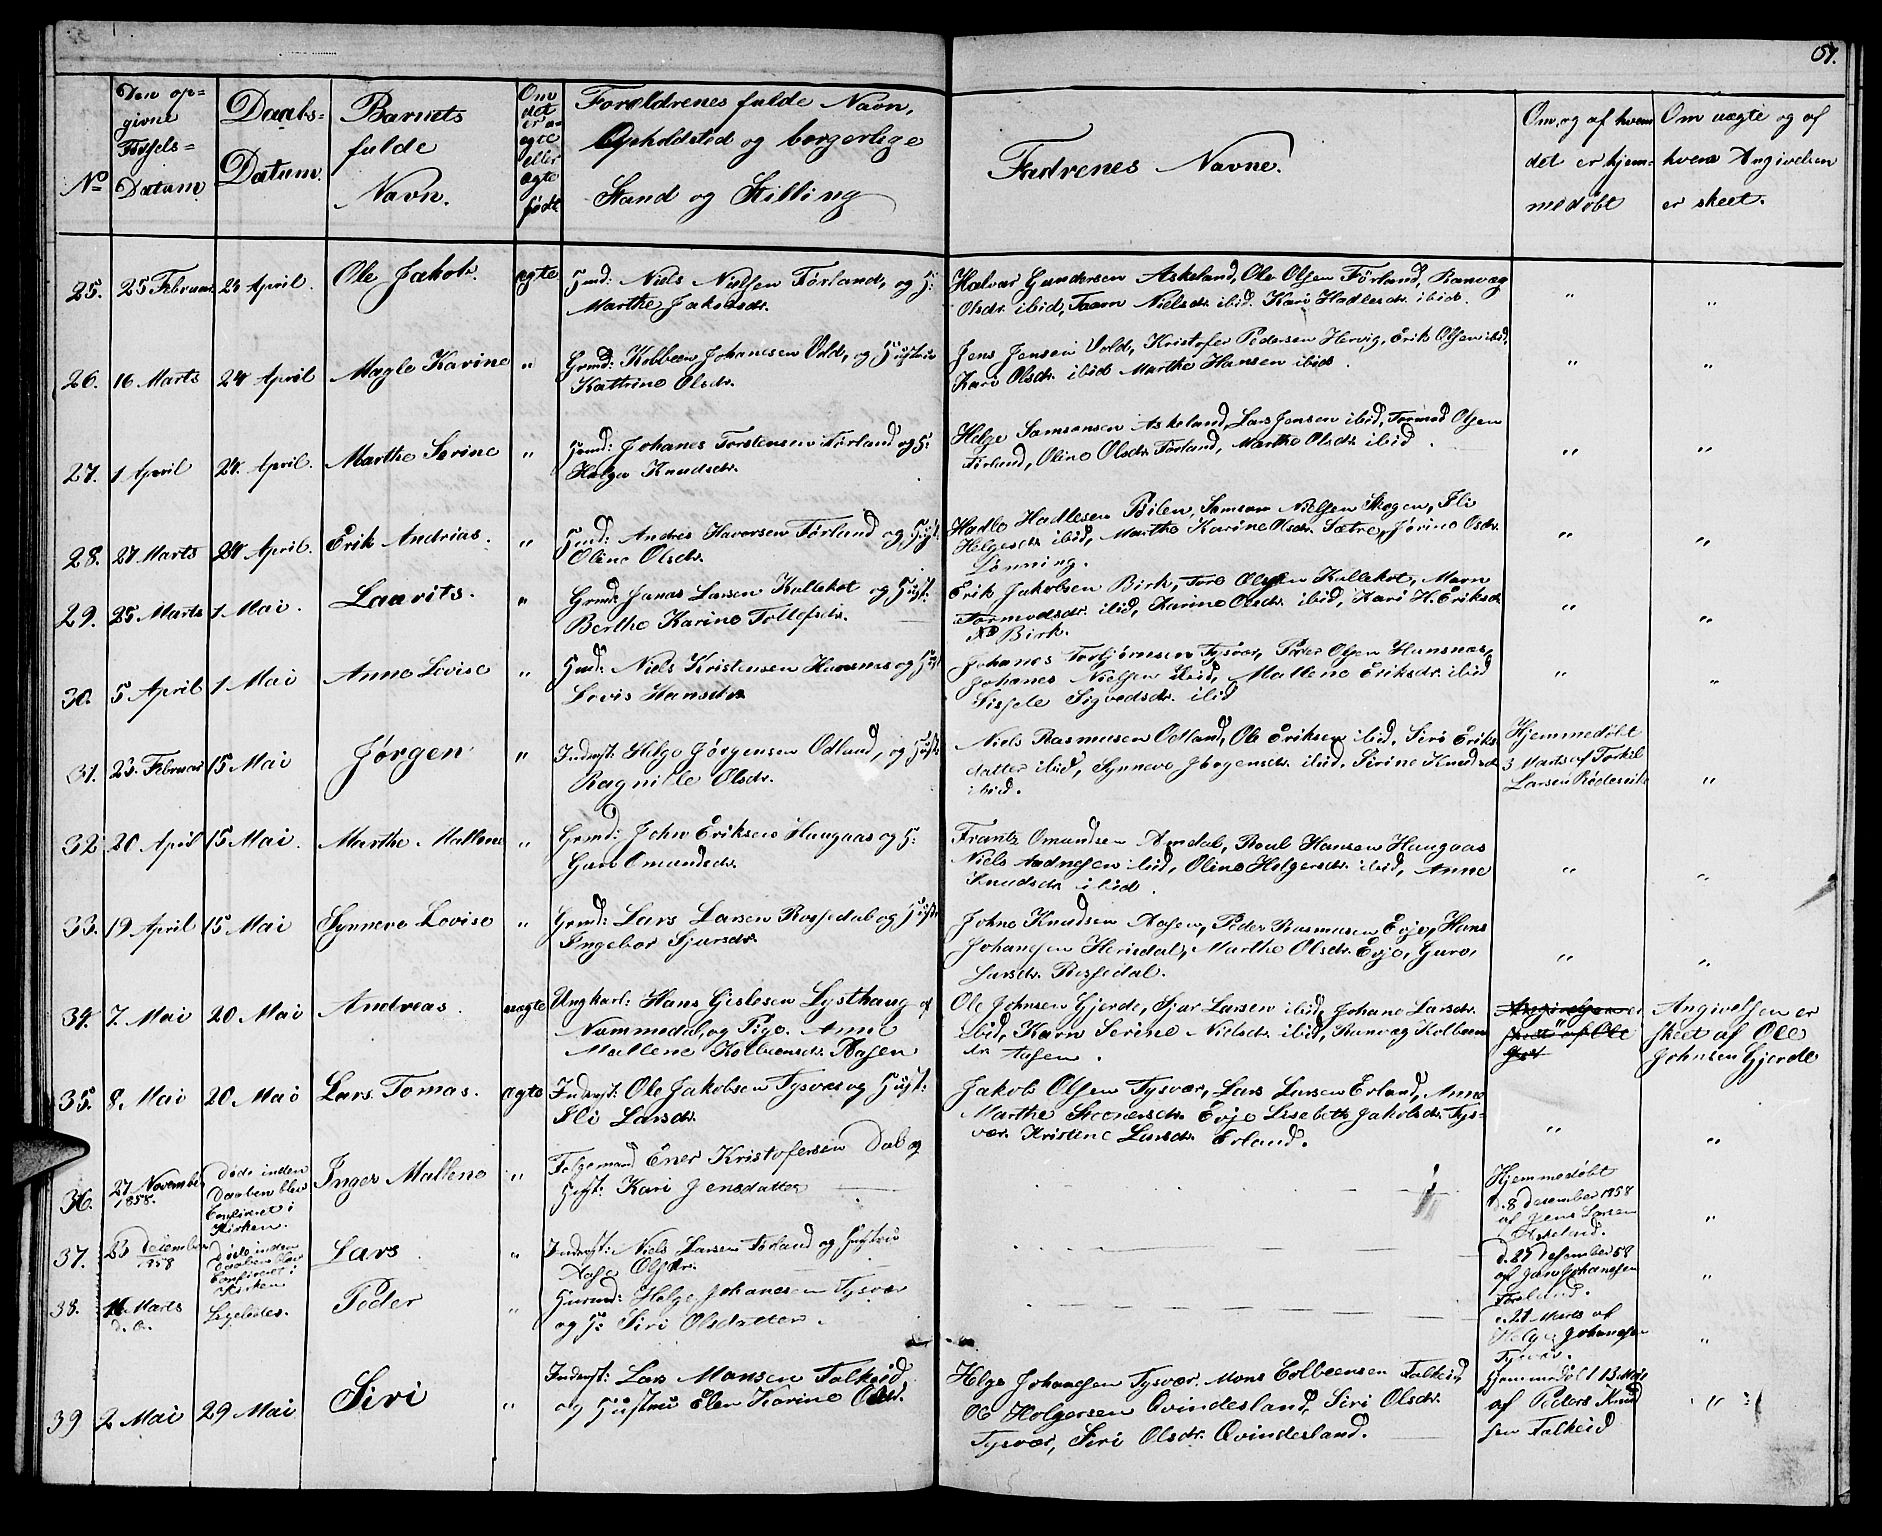 57.
No
Den op=
givne
Fødsels=
Datum.
Daabs=
Datum.
Barnets
fulde
Navn.
Om
det
er u=
egte
eller
ægte
født
Forældrenes fulde Navn,
Opholdsted og borgerlige
Stand og Stilling
Fadrenes Navne.
Om, og af hvem
det er hjem=
medøbt
Om uægte og af
hvem Angivelsen
er skeet.
25. 25 Februar 24 April. Ole Jakob. ægte Gmd: Niels Nielsen Førland, og H:
Marthe Jakobsdr.
Halvar Gundersen Askeland, Ole Olsen Førland, Ranvæg
Olsdr. ibid, Taarn Nielsdr. ibid. Kari Hadlesdr. ibid. " "
26. 16 Marts 24 April Magle Karine " Grmd: Kolbeen Johanesen Vold, og Hustrue
Kattrine Olsdr.
Jens Jensen Vold, Kristofer Pedersen Hervig, Erik Olsen ibid.
Kari Olsdr. ibid Marthe Hansen ibid. " "
27. 1 April 24. April. Marthe Serine " Grmd: Johanes Torstensen Førland og H:
Helga Knudsdr.
Helge Samsonsen Askeland, Lars Jensen ibid, Tormod Olsen
Førland, Oline Olsdr. Førland, Marthe Olsdr. ibid. " "
28. 27 Marts 24 April. Erik Andrias. " Gmd: Andres Havorsen Førland og Hust:
Oline Olsdr.
Hadle Hadlesen Bøilen, Samson Nielsen Skogen, Ili
Helgesdr. ibid, Marthe Karine Olsdr. Sætre, Jørine Olsdr.
Lønning. " "
29. 25 Marts 1 Mai. Laurits. " Grmd: Jonas Larsen Kallekot og Hust:
Berthe Karine Tollefsdr.
Erik Jakobsen Birk, Tore Olsen Kallekot, Marn
Tormodsdr. ibid, Karine Olsdr. ibid, Kari H. Eriksdr.
Birk. " "
30. 5 April 1 Mai Anne Lovise " Gmd: Niels Kristensen Hamsnæs og Hust
Lovis Hansdtr
Johanes Torbjørnsen Tysvær, Peder Olsen Hamsnæs,
Johanes Nielsen ibid, Mallene Eriksdr. ibid
Sissele Sigvedsdr. ibid " "
31. 23. Februar 15 Mai Jørgen " Inderst: Helge Jørgensen Odland, og Hust:
Ragnille Olsdr.
Niels Rasmusen Odland, Ole Eriksen ibid, Siri Eriks=
datter ibid, Synneve Jørgensdr. ibid, Serine Knudsdr.
ibid.
Hjemmedøbt
3 Marts af Torkil
Larsen "
32 20 April 15 Mai. Marthe Mallene " Grmd: John Eriksen Haugaas og H:
Guro Omundsdr.
Frantz Omundsen Amdal, Poul Hansen Haugaas
Niels Aadnesen ibid, Oline Holgersdr. ibid, Anne
Knudsdr. ibid. " "
33. 19 April 15 Mai Synneve Lovise " Grmd: Lars Larsen Rossedal og Hustr
Ingebor Sjursdr.
Johne Knudsen Aasen, Peder Rasmusen Evje, Hans
Johansen Hemdal, Marthe Olsdr. Evje, Guro,
Larsdr. Rossedal. " "
34. 7. Mai 20 Mai Andreas. uægte Ungkarl: Hans Gislesen Lysthaug af
Nummedal, og Pige. Anne
Mallene Kolbeensdr. Aasen
Ole Johnsen Gjerde, Sjur Larsen ibid, Johane Larsdr.
ibid, Karn Serine Nielsdr. ibid, Ranvæg Kolbeens
dr. Aasen.
Angivelsen er
skeet af Ole
Angivelsen er
skeet af Ole
Johnsen Gjerde
35. 8. Mai 20 Mai Lars Tomas. ægte Inderst: Ole Jakobsen Tysvær og Hust:
Ili Larsdr.
Jakob Olsen Tysvær, Lars Larsen Erland, Anne
Marthe Steenersdr. Evje Lisebeth Jakobsdr. Tys=
vær. Kristene Larsdr. Erland. " "
36. 27 November
1858.
Døde inden
Daaben blev
Confirmet i
Kirken.
Inger Mallene " Folgemand Ener Kristofersen Dal og
Hust: Kari Jensdatter
Hjemmedøbt
d. 8 Desember 1858
af Jens Larsen
Askeland. "
37. 23 December
1858
Døde inden
Daaben blev
Confirmet i
Kirken
Lars " Inderst: Niels Larsen Førland og Hustrue
Aase Olsdr.
d. 27 Desember 58
af Jon Johanesen
Førland. "
38. Marts
d. A.
Ligeledes. Peder " Gurmd: Helge Johanesen Tysvær
og H: Siri Olsdatter.
21 Marts af
Helge Johanesen
Tysvær. "
39 2 Mai 29 Mai Siri " Inderst: Lars Monsen Falkeid
og Hustrue Elen Karine Olsdr.
Helge Johanesen Tysvær. Mons Colbeensen Falkeid,
Ole Holgersen Qvindesland, Siri Olsdr.
Tysvær, Siri Olsdr. Qvindesland.
Hjemmedøbt 13. Mai
af Peders Knud
sen Falkeid "